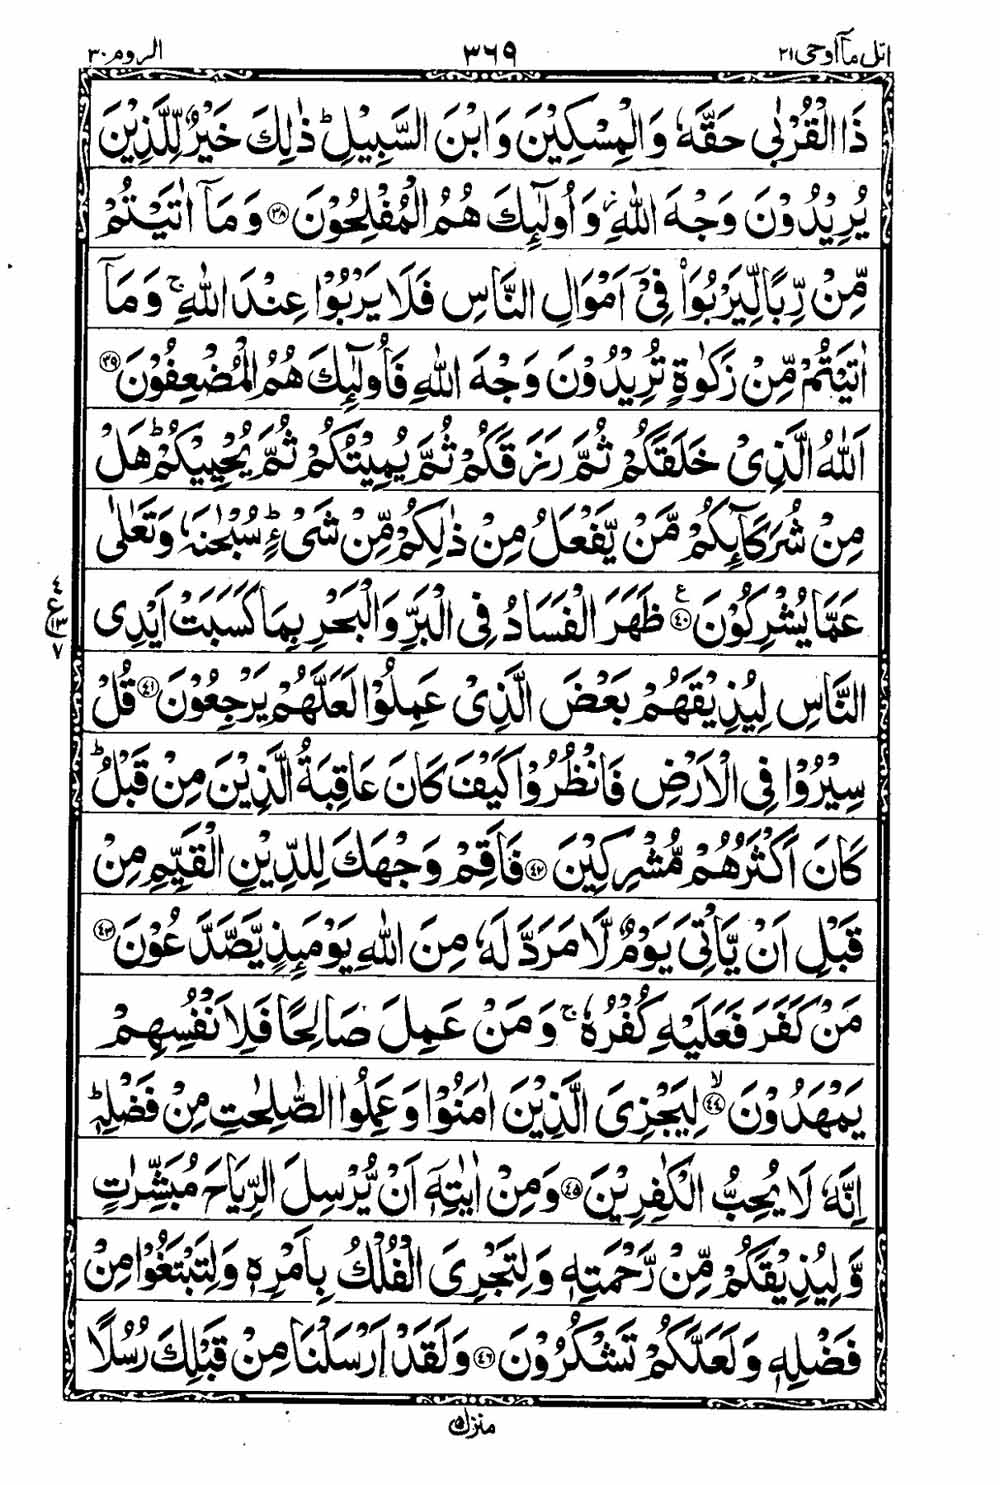 اتل ما اوحی ۲۱ ۳۶۹ الروم ۳۰
ذَا الْقُرْبٰى حَقَّهٗ وَالْمِسْكِيْنَ وَابْنَ السَّبِيْلِ ؕ ذٰلِكَ خَيْرٌ لِّلَّذِيْنَ
يُرِيْدُوْنَ وَجْهَ اللّٰهِ ؗ وَاُولٰٓئِكَ هُمُ الْمُفْلِحُوْنَ ۝۳۸ وَمَاۤ اٰتَيْتُمْ
مِّنْ رِّبًا لِّيَرْبُوَا۠ فِيْۤ اَمْوَالِ النَّاسِ فَلَا يَرْبُوْا عِنْدَ اللّٰهِ ۚ وَمَاۤ
اٰتَيْتُمْ مِّنْ زَكٰوةٍ تُرِيْدُوْنَ وَجْهَ اللّٰهِ فَاُولٰٓئِكَ هُمُ الْمُضْعِفُوْنَ ۝۳۹
اَللّٰهُ الَّذِيْ خَلَقَكُمْ ثُمَّ رَزَقَكُمْ ثُمَّ يُمِيْتُكُمْ ثُمَّ يُحْيِيْكُمْ ؕ هَلْ
مِنْ شُرَكَآئِكُمْ مَّنْ يَّفْعَلُ مِنْ ذٰلِكُمْ مِّنْ شَيْءٍ ؕ سُبْحٰنَهٗ وَتَعٰلٰى
عَمَّا يُشْرِكُوْنَ ۝۴۰ ع ظَهَرَ الْفَسَادُ فِي الْبَرِّ وَالْبَحْرِ بِمَا كَسَبَتْ اَيْدِي
النَّاسِ لِيُذِيْقَهُمْ بَعْضَ الَّذِيْ عَمِلُوْا لَعَلَّهُمْ يَرْجِعُوْنَ ۝۴۱ قُلْ
سِيْرُوْا فِي الْاَرْضِ فَانْظُرُوْا كَيْفَ كَانَ عَاقِبَةُ الَّذِيْنَ مِنْ قَبْلُ ؕ
كَانَ اَكْثَرُهُمْ مُّشْرِكِيْنَ ۝۴۲ فَاَقِمْ وَجْهَكَ لِلدِّيْنِ الْقَيِّمِ مِنْ
قَبْلِ اَنْ يَّاْتِيَ يَوْمٌ لَّا مَرَدَّ لَهٗ مِنَ اللّٰهِ يَوْمَئِذٍ يَّصَّدَّعُوْنَ ۝۴۳
مَنْ كَفَرَ فَعَلَيْهِ كُفْرُهٗ ۚ وَمَنْ عَمِلَ صَالِحًا فَلِاَنْفُسِهِمْ
يَمْهَدُوْنَ ۙ۝۴۴ لِيَجْزِيَ الَّذِيْنَ اٰمَنُوْا وَعَمِلُوا الصّٰلِحٰتِ مِنْ فَضْلِهٖ ؕ
اِنَّهٗ لَا يُحِبُّ الْكٰفِرِيْنَ ۝۴۵ وَمِنْ اٰيٰتِهٖۤ اَنْ يُّرْسِلَ الرِّيَاحَ مُبَشِّرٰتٍ
وَّلِيُذِيْقَكُمْ مِّنْ رَّحْمَتِهٖ وَلِتَجْرِيَ الْفُلْكُ بِاَمْرِهٖ وَلِتَبْتَغُوْا مِنْ
فَضْلِهٖ وَلَعَلَّكُمْ تَشْكُرُوْنَ ۝۴۶ وَلَقَدْ اَرْسَلْنَا مِنْ قَبْلِكَ رُسُلًا
منزل ۵